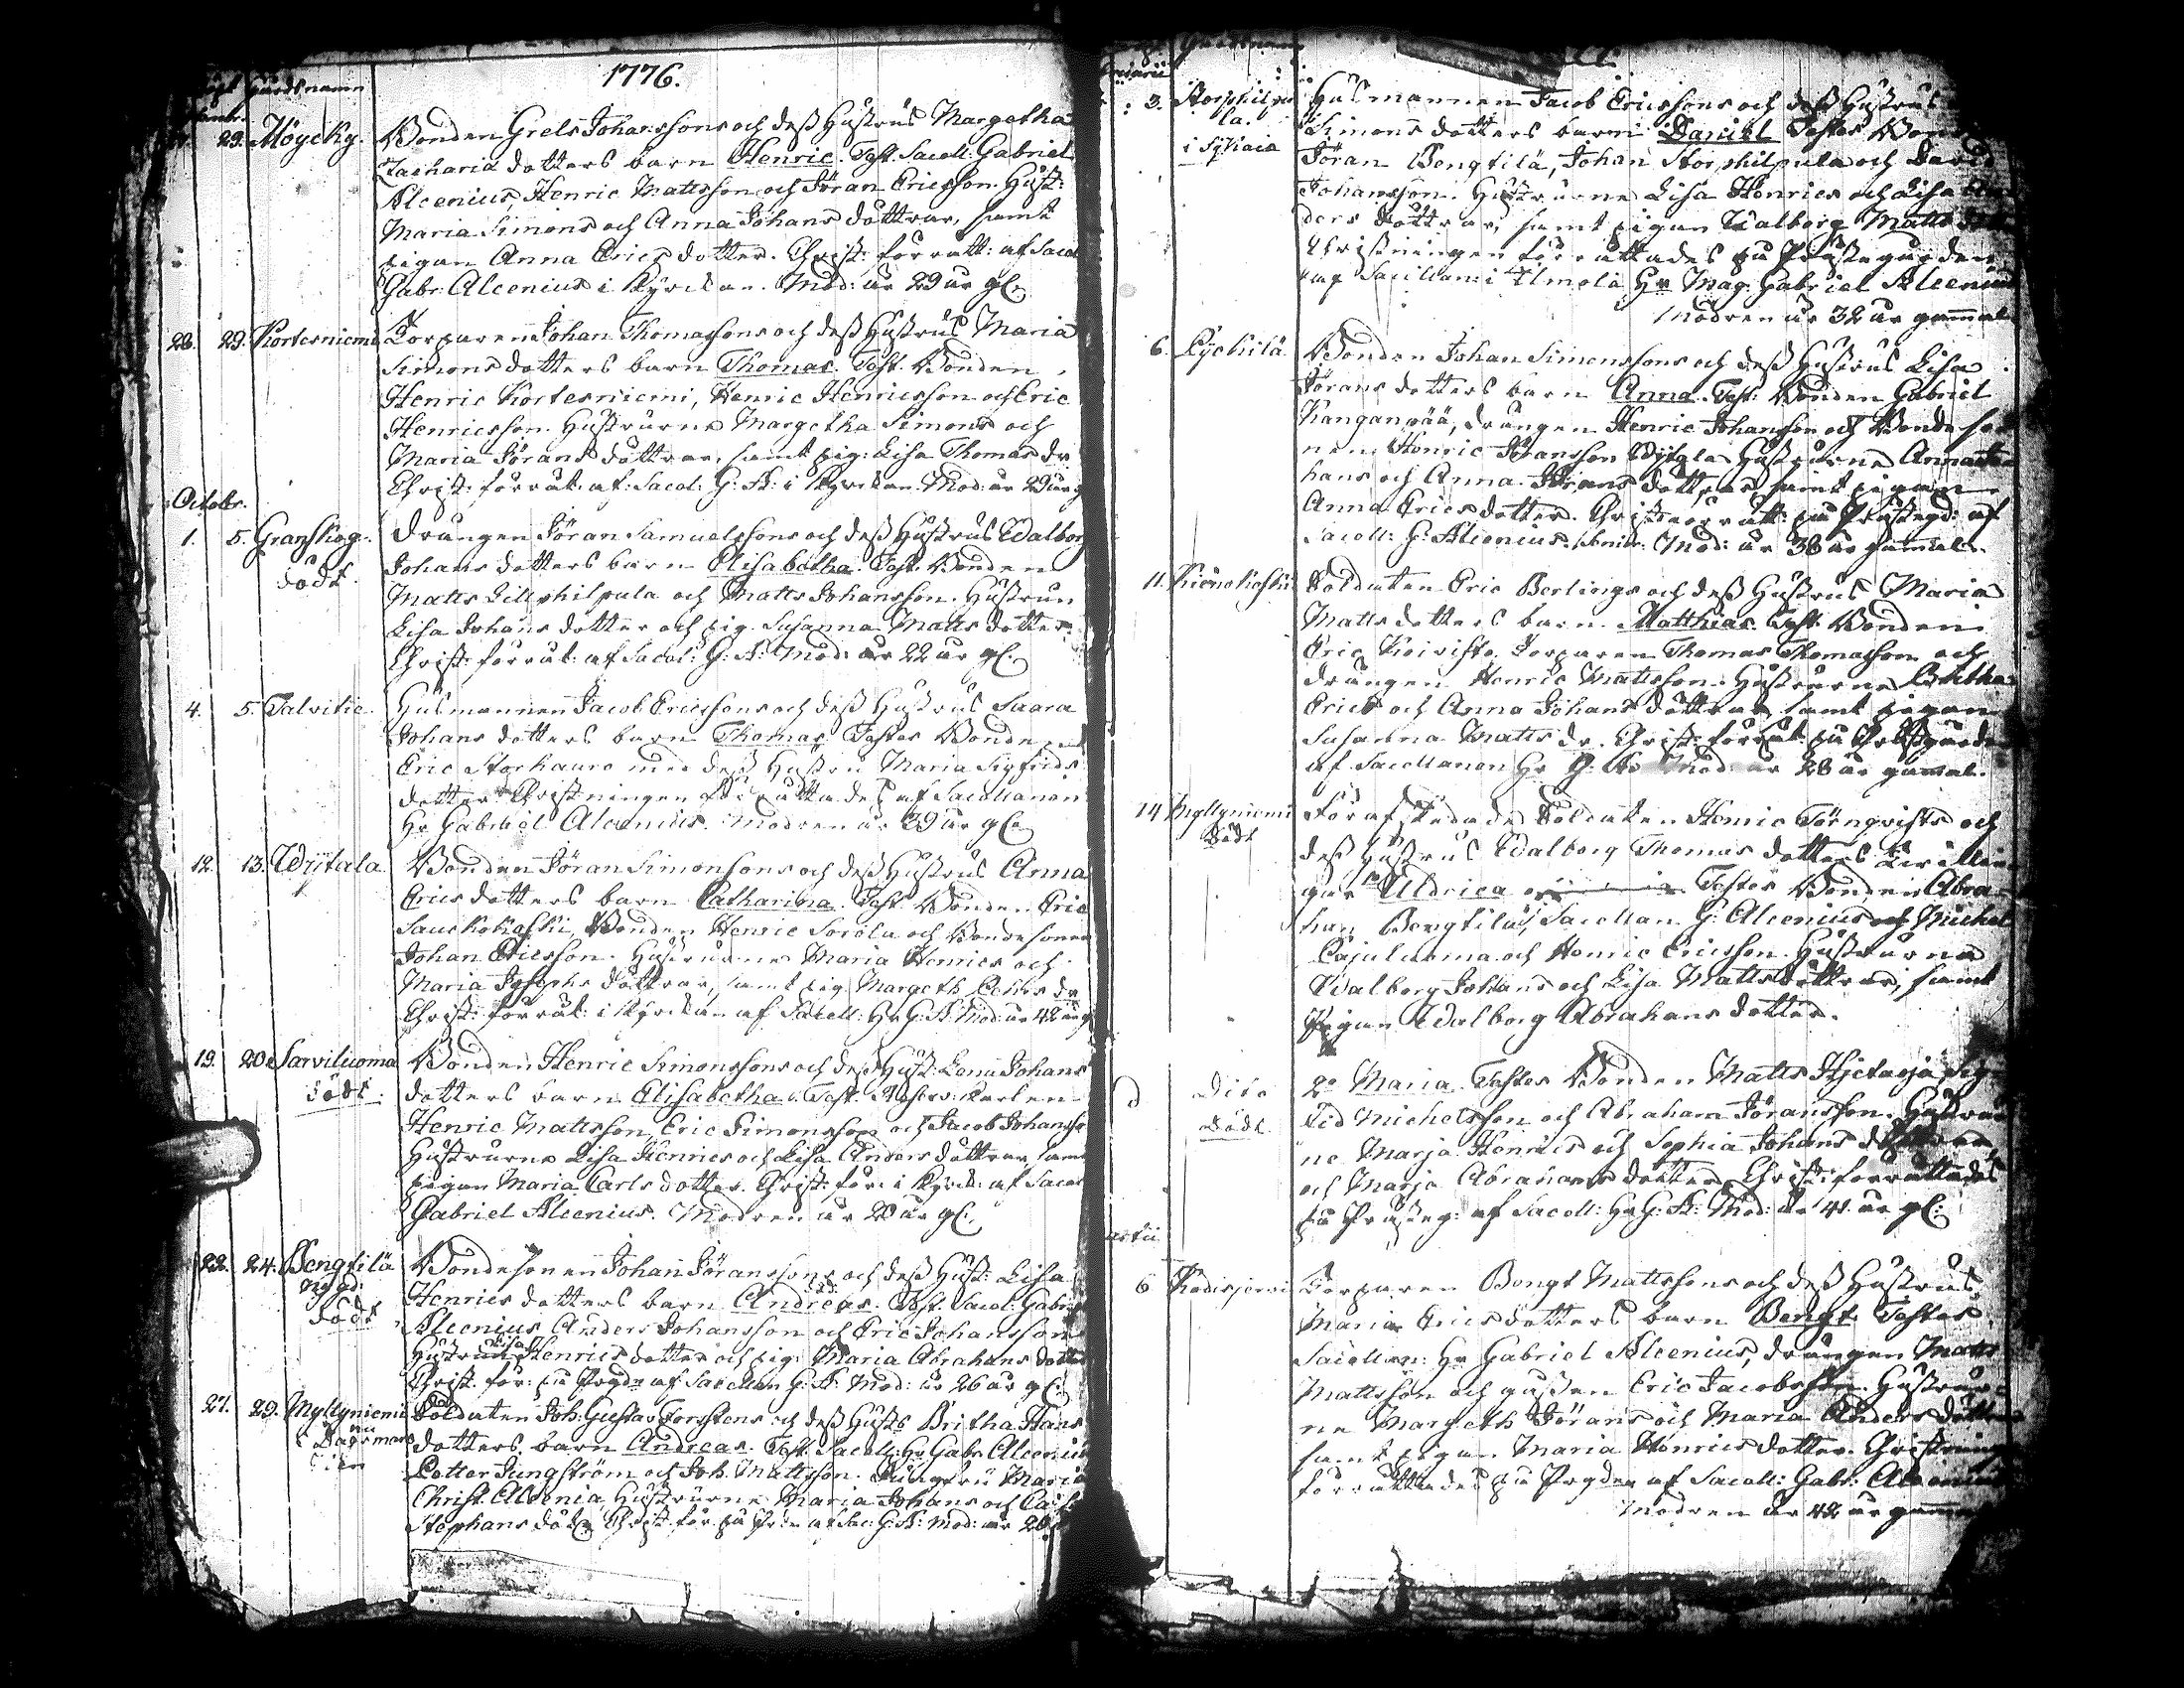 Gårdsnamn
1776.
29. Möycky. Bonden Grels Johanssons och dess Hustrus Margetha
Zacharia dotters barn Henric. Test. Sacell: Gabriel
Alcenius, Henric Mattsson och Jöran Ericsson. Hust:
Maria Simons och Anna Johans döttrar, samt
pigan Anna Erics dotter. Christ: förrätt: af Sacel
Gabr. Alcenius i Kyrckan. Mod: är 29 år gl.
28. 29. Kortesniemi Torparen Johan Thomassons och dess Hustrus Maria
Simons dotters barn Thomas. Test. Bonden
Henric Kortesniemi, Henric Henricsson och Eric
Henricsson. Hustrurne Margetha Simons och
Maria Jörans döttrar, samt pig: Lisa Thomas dr
Christ: förrät: af: Sacel: G: A: i Kyrckan. Mod: är 29 år g
Octobr.
1. 5. Granskog. Drängen Jöran Samuelssons och dess Hustrus Walborg
död. Johans dotters barn Elisabetha. Test. Bonden
Matts Lillphilpula och Matts Johansson. Hustrun
Lisa Johans dotter och pig. Susanna Matts dotter.
Christ: förrät: af Sacel: G: A: Mod: är 22 år gl.
4. 5. Talvitie. Husmannen Jacob Ericssons och dess Hustrus Saara
Johans dotters barn Thomas. Testes Bonden
Eric Storkauro med dess Hustru Maria Sigfrids
dotter. Christningen förrättades af Sacellanen
Hr Gabriel Alcenius. Modren är 39 år gl.
12. 13. Wijtala Bonden Jöran Simonssons och dess Hustrus Anna
Erics dotters barn Catharina. Test. Bonden Eric
Sauckokoski, Bonden Henric Sorola och Bondesonen
Johan Ericsson. Hustrurne Maria Henrics och
Maria Josephs döttrar, samt pig Margeth Petters dr
Christ: förrät: i Kyrckan af Sacell: Hr G: A: Mod: är 42 år g
19. 20. Sarviluoma Bonden Henric Simonssons och dess Hust: Lena Johans
död. dotters barn Elisabetha. Test.
Henric Mattsson, Eric Simonsson och Jacob Johansso
Hustrurne Lisa Henrics och Lisa Anders döttrar, samt
pigan Maria Carls dotter. Christ: för: i Kyrck: af Sacel
Gabriel Alcenius. Modren är 20 år gl.
22. 24. Bengtilä Bondesonen Johan Jöranssons och dess Hust: Lisa
nygd: Henrics dotters barn Andreas. Test. Sacel: Gabri
död Alcenius, Anders Johansson och Eric Johansson
Hustrun Lisa Henrics dotter och pig: Maria Abrahams dotter
Christ: för: på Prgdn af Sacellan G: A: Mod: är 26 år gl.
27. 29. Myllyniemi Soldaten Joh: Gustav Forsstens och dess Hustr Britha Hans
dotters barn Andreas. Test. Sacell: Hr Gabr. Alcenius
Petter Ljungström och Joh. Mattsson. Jungfru Maria
Christ. Alcenia, Hustrurne Maria Johans och Cais
Stephans döt. Christ: för på Prdn af Sac: G: A: Mod: är 20
3. Storphilpu
la. Husmannen Jacob Ericssons och dess Hustrus
Simons dotters barn Daniel. Testes Bond
Jöran Bengtilä, Johan Storphilpula och David
Johansson. Hustrurne Lisa Henrics och Lisa An
ders döttrar, samt pigan Walborg Matts dott
Christningen förrättades på Prästegården
af Sacellan: i Ilmola Hr Mag: Gabriel Alcenius
Modren är 32 år gammal
6. Pychilä Bonden Johan Simonssons och dess Hustrus Lisa
Jörans dotters barn Anna. Test: Bonden Gabriel
Kanganpää, Drängen Henric Johansson och Bondeso
nen Henric Jöransson Wijtala, Hustrurne Anna Jo
hans och Anna Jörans döttrar, samt pigan
Anna Erics dotter. Christ: förrätt: på Prästegd: af
Sacell: G: Alcenius. Mod: är 38 år gammal.
11. Soldaten Eric Berlings och dess Hustrus Maria
Matts dotters barn Matthias. Test: Bonden
Eric Koivisto, Torparen Thomas Thomasson och
drängen Henric Mattsson. Hustrurne Britha
Erics och Anna Johans döttrar samt pigan
Susanna Matts dr. Christ: förrät: på Prästgården
af Sacellanen Hr G: Mod: är 28 år gamal.
14 Myllyniemi Förafskedade Soldaten Henric Törnqvists och
Död dess Hustrus Walborg Thomas dotters Tvillin
gar 1o Uldrica Testes Bonden Abra
ham Bengtilä, Sacellan G: Alcenius och Michel
Cajulurma och Henric Ericsson. Hustrurne
Walborg Johans och Lisa Matts döttrar, samt
Pigan Walborg Abrahams dotter.
Dito 2o Maria. Testes Bonden Matts Hietaoja, Sig
Död frid Michelsson och Abraham Jöransson. Hustrur
ne Marja Henrics och Sophia Johans döttrar,
och Marja Abrahams dotter. Christ: förrättades
på Prästeg: af Sacell: Hr G: A: Mod: är 41 år gl:
6 Torparen Bengt Mattssons och dess Hustrus
Maria Erics dotters barn Bengt. Testes
Sacellan: Hr Gabriel Alcenius, drängen Matts
Mattsson och gossen Eric Jacobsson. Hustrur
ne Margeth Jörans och Maria Anders döttrar
samt pigan Maria Henrics dotter. Christning
förrättades på Prgden af Sacell: Gabr: Alcenius
Modren är 42 år gamma